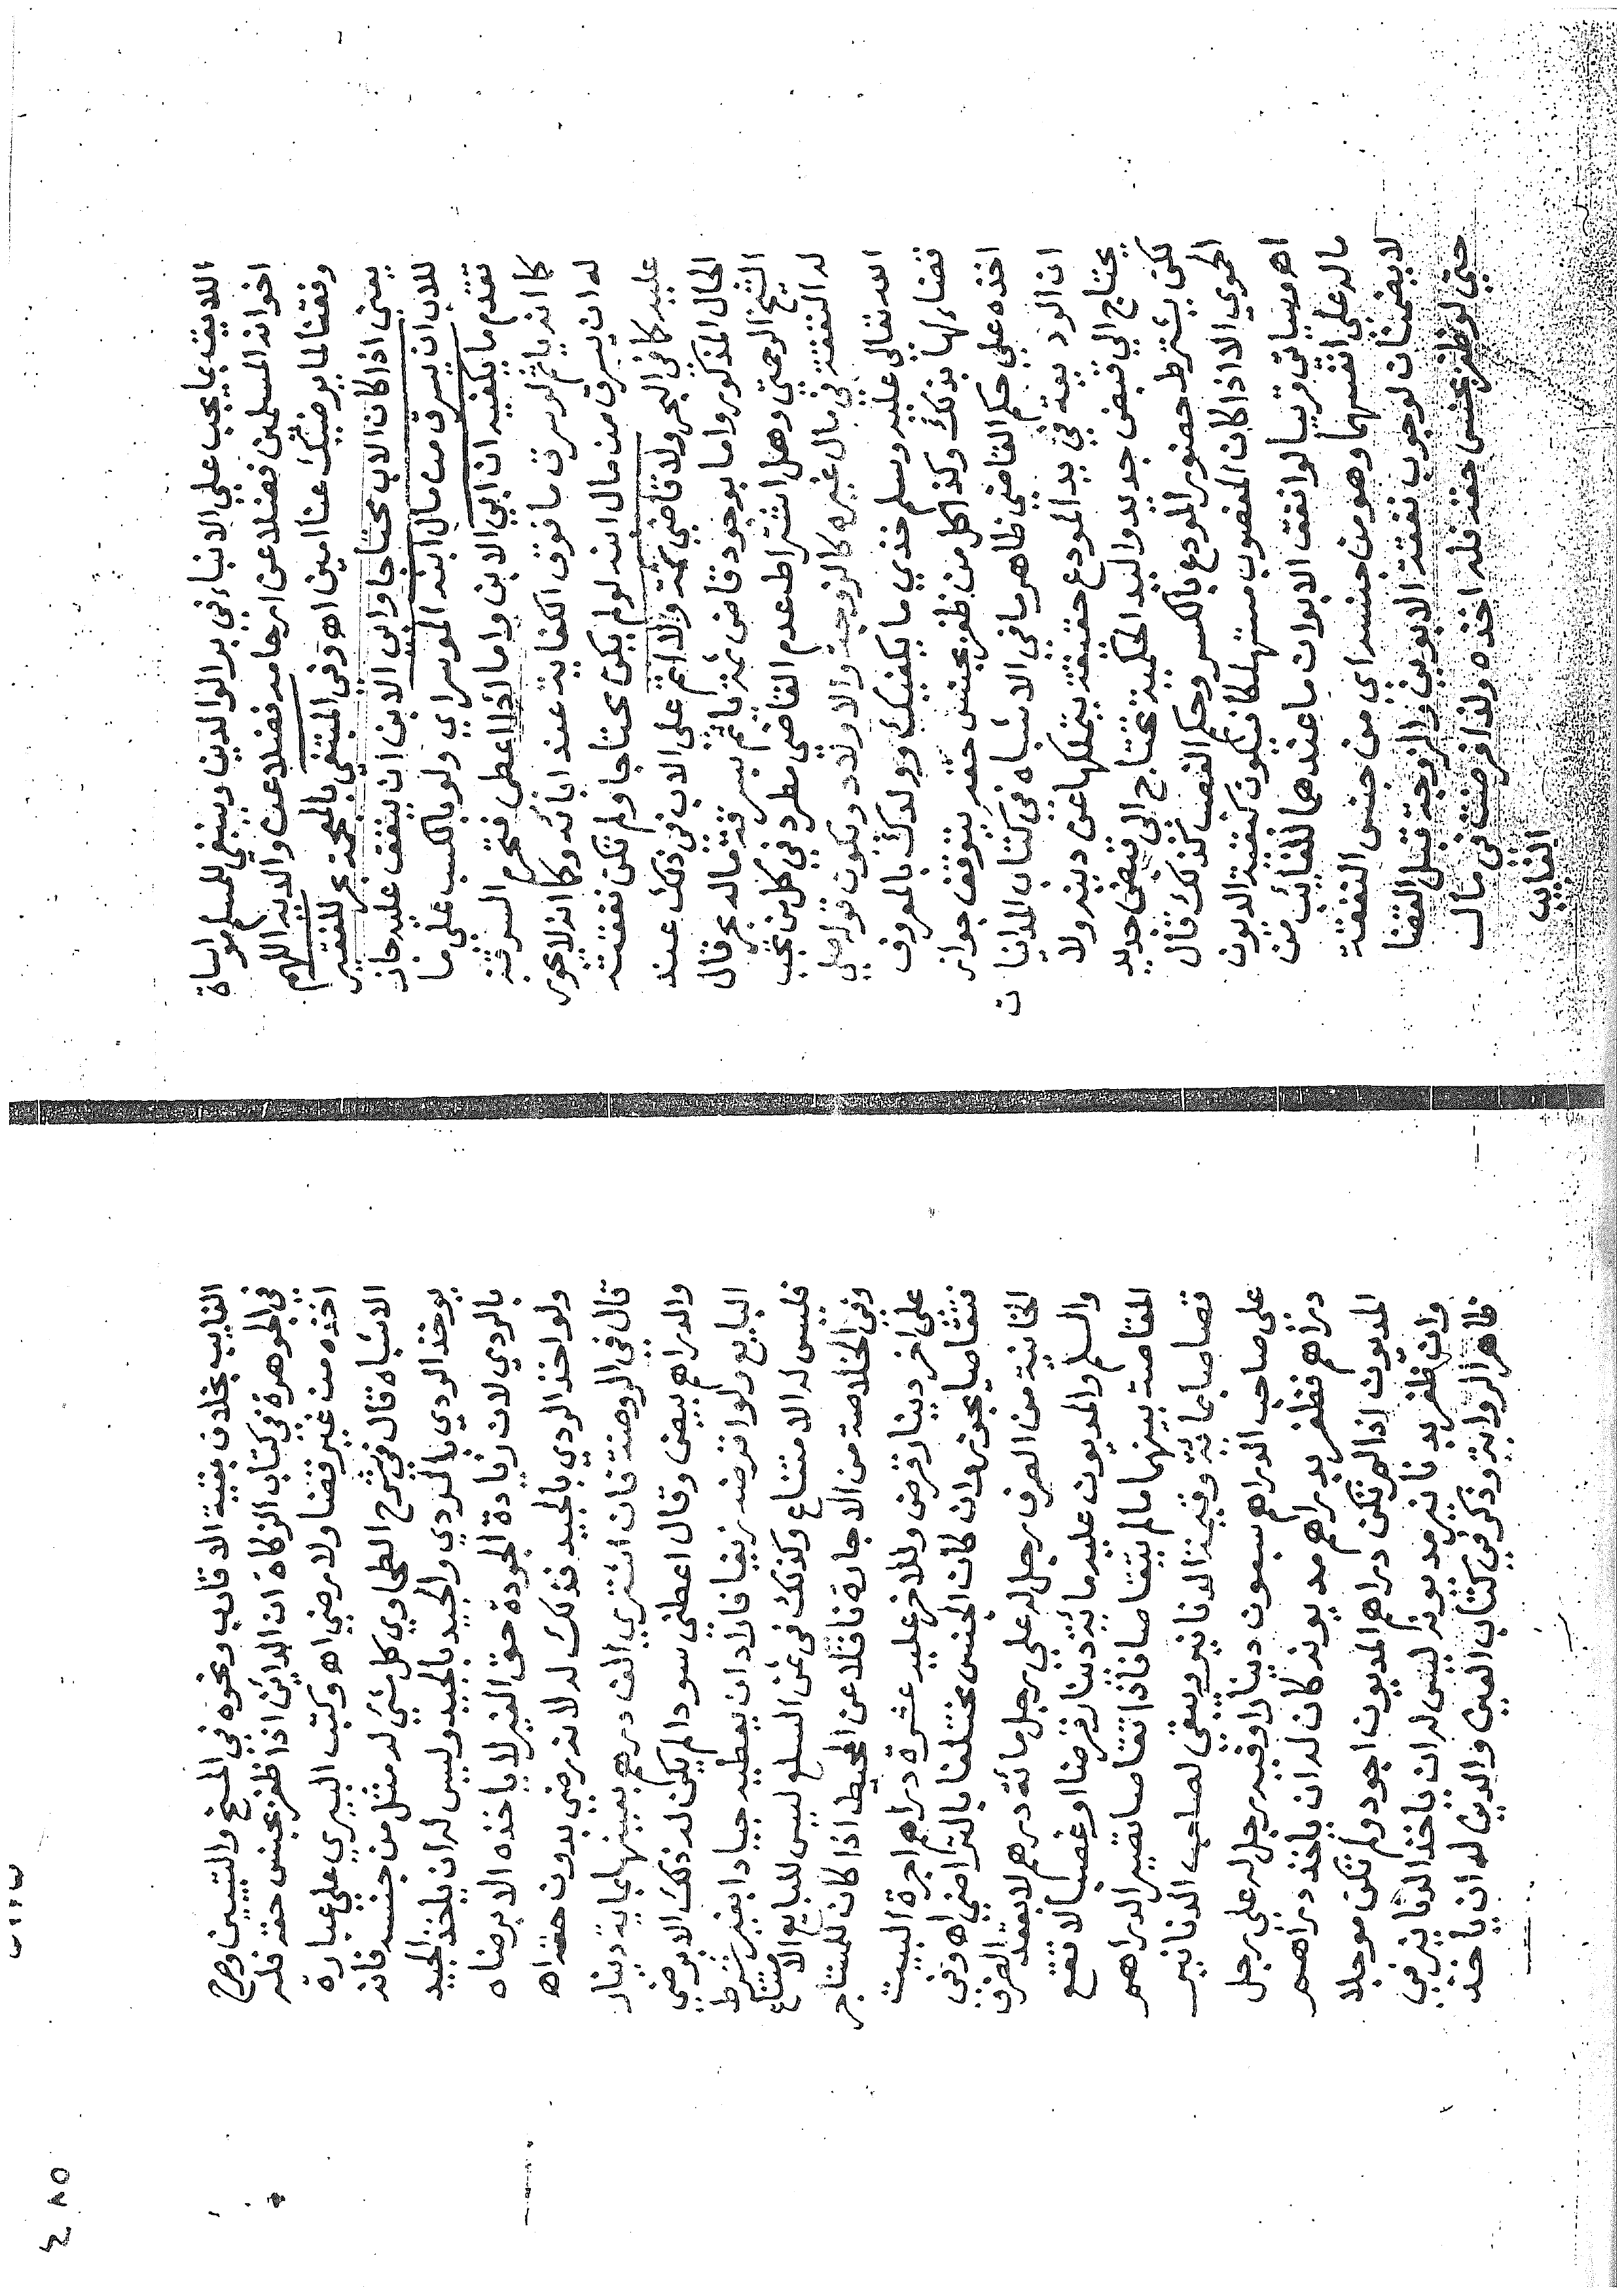 اللايقه بما يجب علي الابناء في بر الوالدين وينبغي للمسلم مواساة
اخوانه المسلمين فضلا عن ارحامه فضلا عن والديه اللهم
وفقنا لما يرضيك عنا امين اه وفي المبتغي بالمعجمة بحر للفقير
يعني اذا كان الاب محتاجا وابي الابن ان ينفق عليه جاز
للاب ان يسرق من مال ابنه الموسر اي ولو بالكسب علي ما
تقدم ما يكفيه ان ابي الابن واما اذا اعطي فتحرم السرقة
كما انه ياثم لو سرق ما فوق الكفاية عند ابائه وكما انه لا يجوز
له ان يسرق من مال ابنه لو لم يكن محتاجا ولم تكن نفقته
عليه كما في البحر ولا قاضي ثمة والا اثم علي الاب في ذلك عند
الحال المذكور واما بوجود قاض ثمة ياثم بسرقة ماله بحر قال
الشيخ الرحمتي وهل اشتراط عدم القاضي مطرد في كل من تجب
له النفقة في مال غيره كالزوجة والاولاد ويكون قوله صلي
الله تعالي عليه وسلم خذي ما يكفيك وولدك بالمعروف
قضاء لها بذلك وكذا كل من ظفر بجنس حقه يتوقف جواز
اخذه علي حكم القاضي ظاهر ما في الاشباه في كتاب المداينات
ان الوديعة في يد المودع حقيقة يتملكها عن دينه ولا
يحتاج الي قبض جديد واليد الحكمية تحتاج الي قبض جديد
لكن يشترط حضور المودع بالكسر وحكم الغصب كذلك قال
الحموي الا اذا كان المغصوب مستهلكا فيكون كبقية الديون
اه وسياتي قريبا لو انفق الابوان ما عندهما للغائب من
ماله علي انفسهما وهو من جنسه اي من جنس النفقة
لا يضمنان لوجوب نفقة الابوين والزوجة قبل القضا
حتي لو ظفر بجنس حقه فله اخذه ولذا فرضت في مال
الغايب
الغايب بخلاف بقية الاقارب ونحوه في المنح والتبيين وصرح
في الجوهرة في كتاب الزكاة ان الدائن اذا ظفر بجنس حقه فله
اخذه من غير قضا ولا رضي اه وكتب البيري علي عبارة
الاشباه قال في شرح الطحاوي كل شيء له مثل من جنسه فانه
يوخذ الردي بالردي والجيد بالجيد وليس له ان ياخذ الجيد
بالردي لان زيادة الجودة حق الغير لا ياخذه الا برضاه
ولو اخذ الردي بالجيد فذلك له لانه رضي بدون حقه اه
قال في الروضة فان اشتري الف درهم بعينها بماية دينار
والدراهم بيض وقال اعطني سودا لم يكن له ذلك الا برضي
البايع ولو اقرضه زيفا فاراد ان يعطيه جيادا بغير شرط
فليس له الامتناع وكذلك في ثمن السلع ليس للبايع الامتناع
وفي الخلاصة من الاجارة ناقلا عن المحيط اذا كان للمستاجر
علي اخر دينار قرض وللاخر عليه عشرة دراهم اجرة البيت
فتقاصا يجوز وان كان الجنس مختلفا بالتراضي اه وفي
الخانية من الصرف رجل له علي رجل مائة درهم لا بعقد الصرف
والسلم والمديون عليه مائة دينار قرضا او غصبا لا تقع
المقاصة بينهما ما لم يتقاصا فاذا تقاصا تصير الدراهم
قصاصا بماية وقيمة الدنانير ويبقي لصاحب الدنانير
علي صاحب الدراهم سبعون دينارا وفيه رجل له علي رجل
دراهم فظفر بدراهم مديونه كان له ان ياخذ دراهم
المديون اذا لم تكن دراهم المديون اجود ولم تكن موجلا
وان ظفر بدنانير مديونه ليس له ان ياخذ الدنانير في
ظاهر الرواية وذكر في كتاب العين والدين له ان ياخذ
٤٨٥